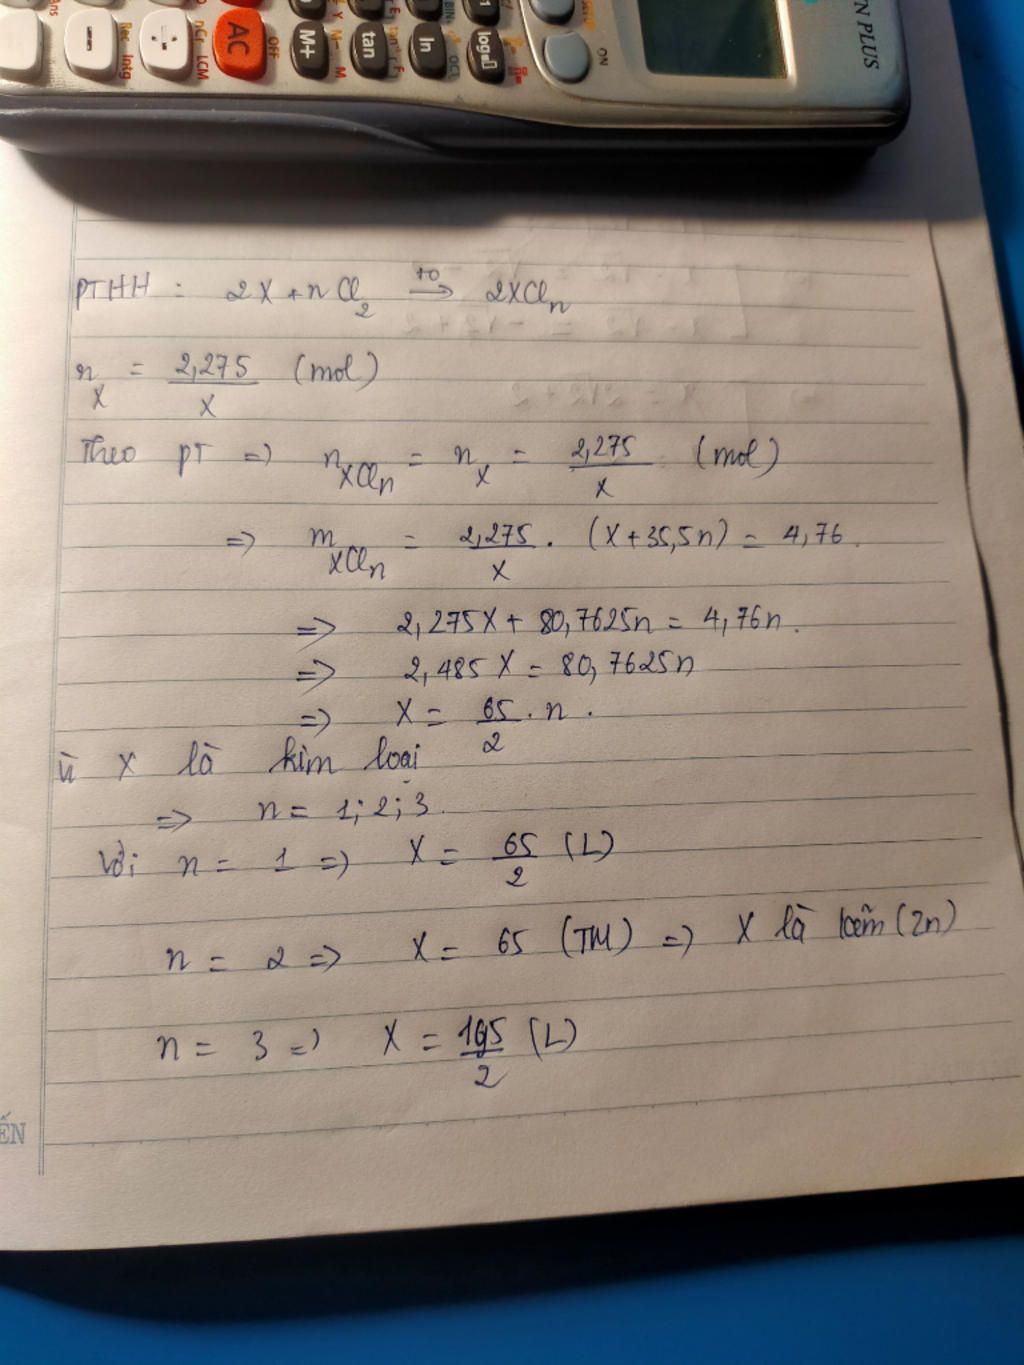 N PLUS
ON
Ans
Rec Intg
nCr LCM
AC
OFF
M+
M- M
tan
ln
log
PTHH : 2X + nCl₂ →^{t0} 2XClₙ
n_X = 2,275/X (mol)
Theo PT => n_{XClₙ} = n_X = 2,275/X (mol)
=> m_{XClₙ} = 2,275/X . (X+35,5n) = 4,76.
=> 2,275X + 80,7625n = 4,76n.
=> 2,485X = 80,7625n
=> X = 65/2 . n .
ì X là kim loại
=> n = 1; 2; 3.
Với n = 1 => X = 65/2 (L)
n = 2 => X = 65 (TM) => X là kẽm (Zn)
n = 3 => X = 195/2 (L)
ẾN